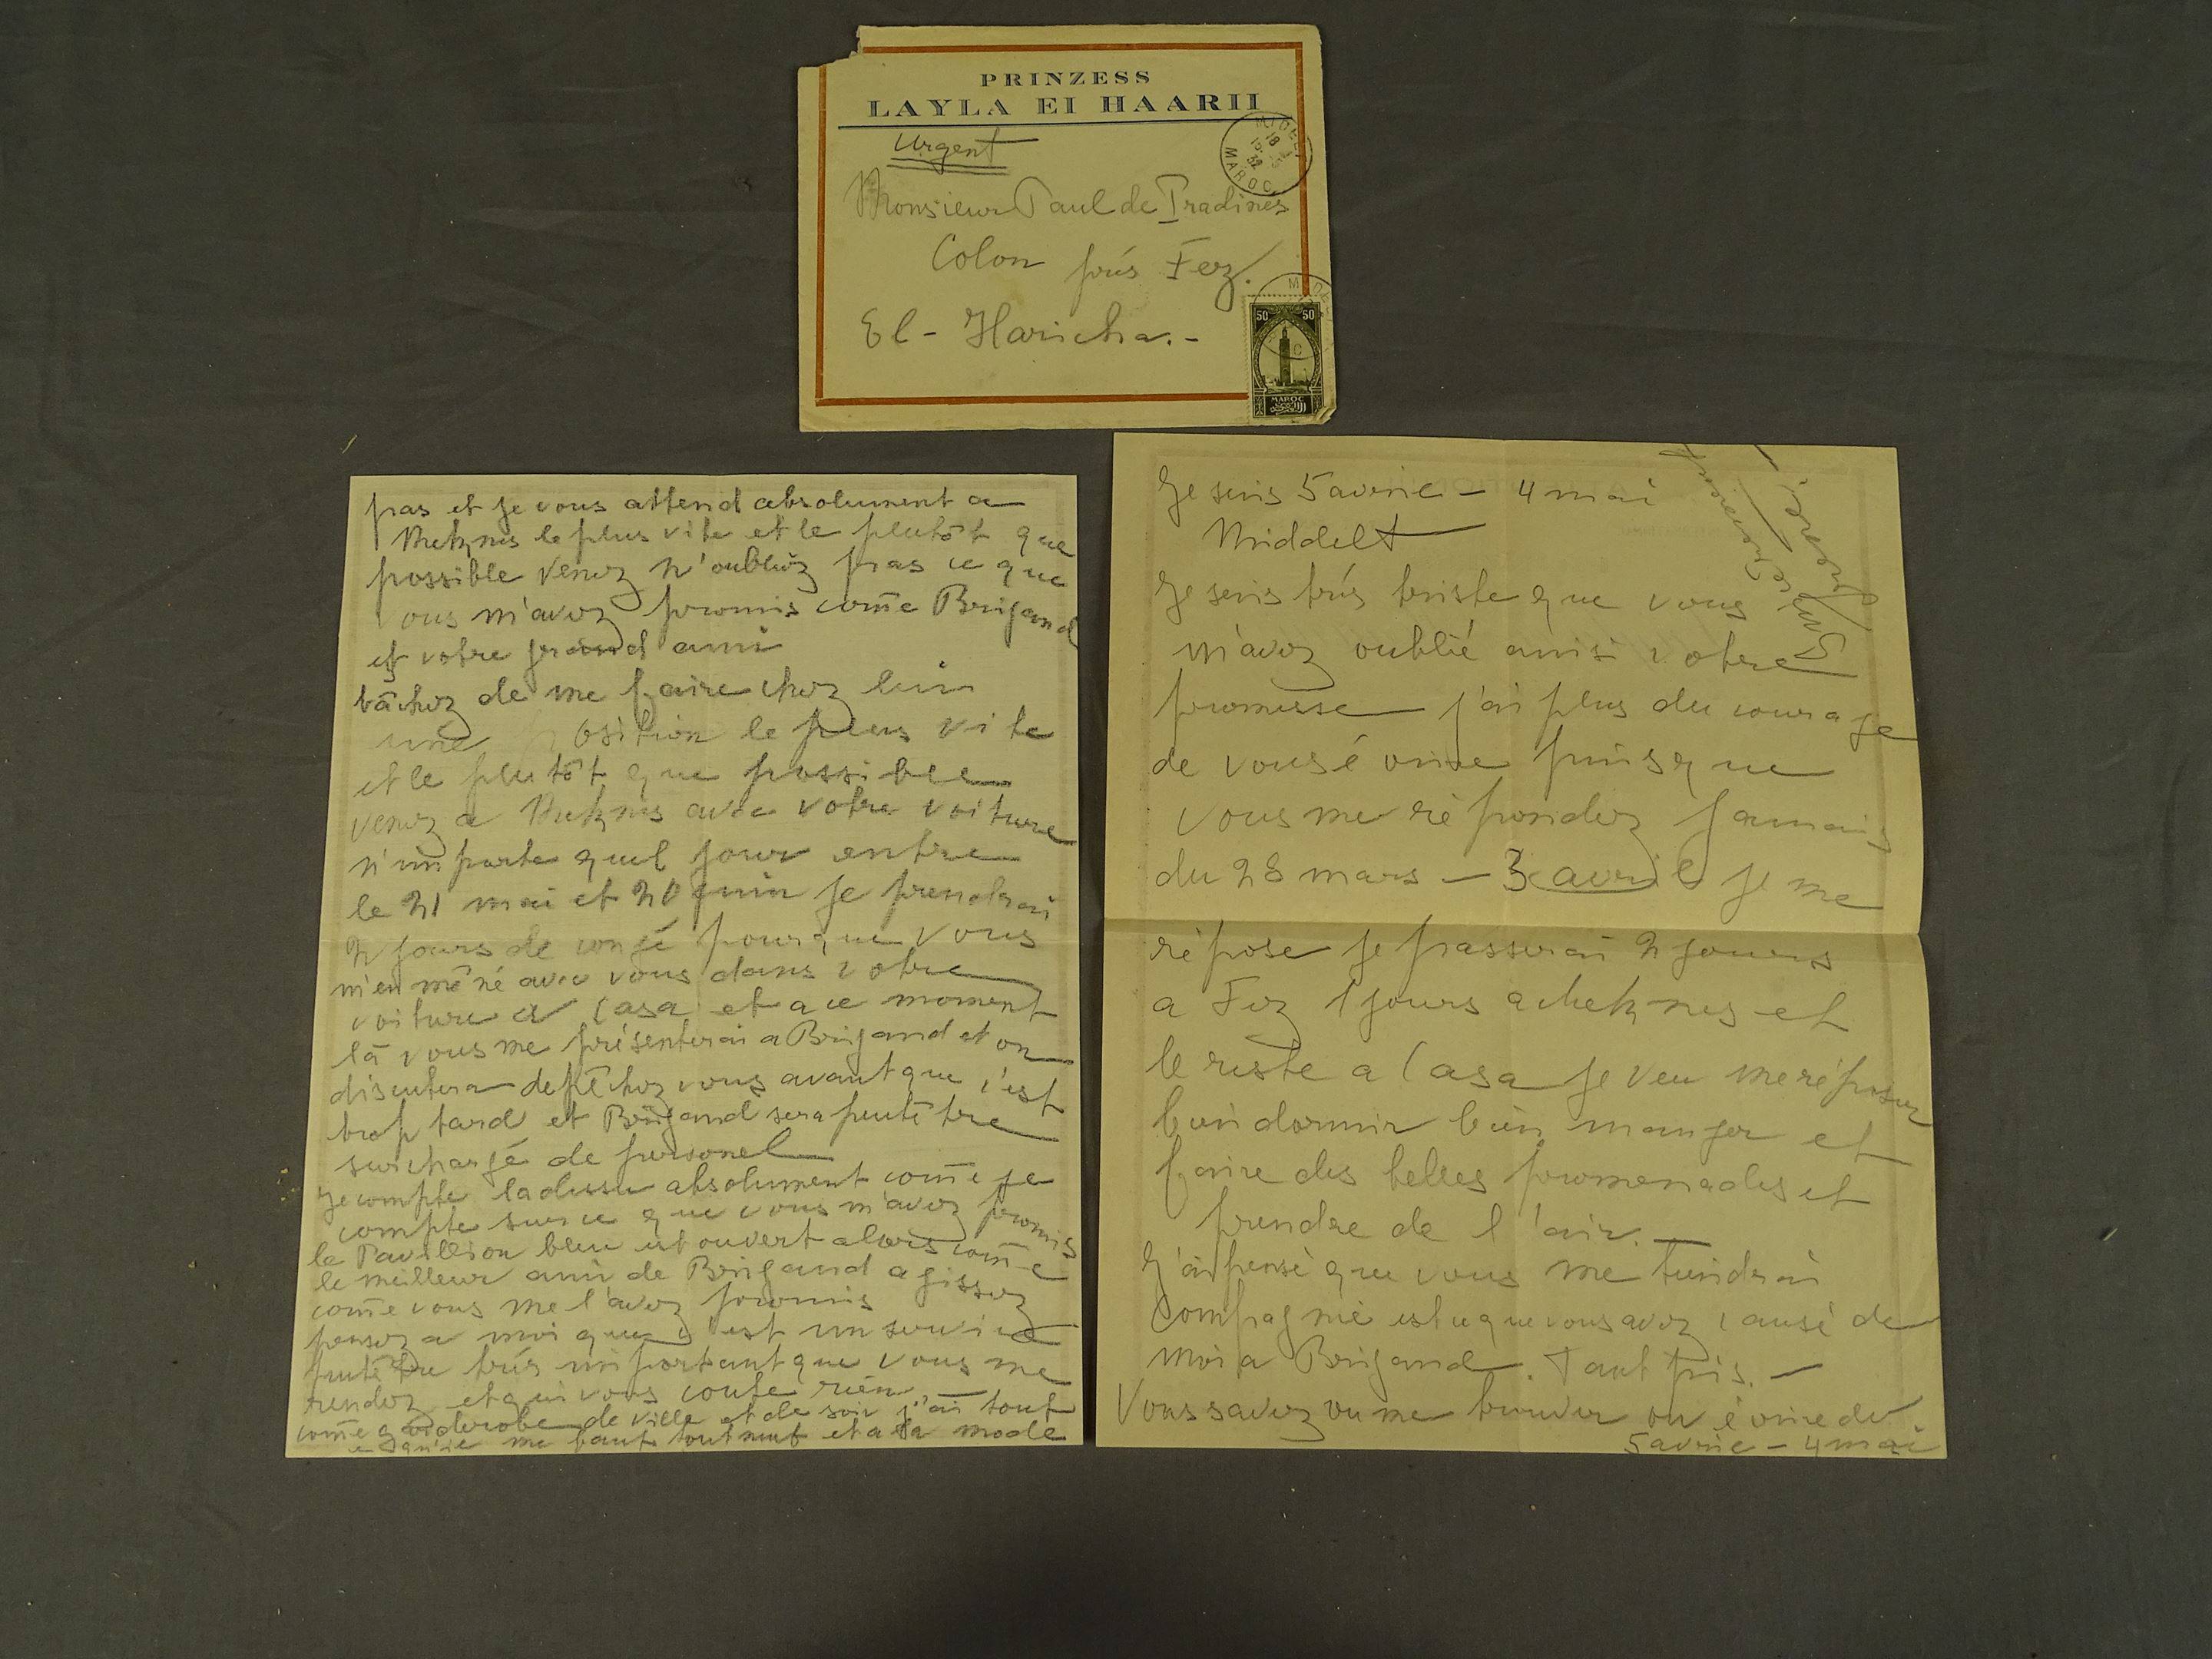 PRINZESS
LAYLA EI HAARII
Urgent
Monsieur Paul de Pradines
Colon prés Fez.
El - Haricha.-
MIDELT
18
19
32
MAROC
50 50
MAROC
pas et je vous attend absolument a
Mekznes le plus vite et le plutôt que
possible venez n'oubliez pas ce que
vous m'avez promis come Brigand
est votre grand ami
tâchez de me faire chez lui
une position le plus vite
et le plutôt que possible
venez a Mekznes avec votre voiture
n'importe quel jour entre
le 21 mai et 21 juin je prendrai
2 jours de congé pourque vous
m'en mêné avec vous dans votre
voiture a Casa et a ce moment
là vous me présenterai a Brigand et on
discutera depêchez vous avant que c'est
trop tard et Brigand sera peutêtre
surchargé de personel
je compte ladessu absolument come je
compte sur ce que vous m'avez promis
le Pavillion bleu est ouvert alors come
le meilleur ami de Brigand agissez
come vous me l'avez promis
pensez a moi que c'est un service
peutêtre trés important que vous me
rendez et qui vous coute rien, j'ai tout
come garderobe de ville et de soir
me faut tout neuf et a la mode
je suis 5 avril - 4 mai
Middelt
je suis trés triste que vous
m'avez oublié ainsi votre
promesse j'ai plus du courage
de vous é crire puisque
vous me ré pondez jamais
du 28 mars - 3 avril je me
répose je passerai 2 jours
a Fez 1 jours a Mekznes et
le reste a Casa je veu me réposer
bien dormir bien manger et
faire des belles promenades et
prendre de l'air.-
J'ai pensé que vous me tiendrai
compagnie est ce que vous avez causé de
moi a Brigand. Tant pis.-
Vous savez ou me trouver ou é crire du
5 avril - 4 mai